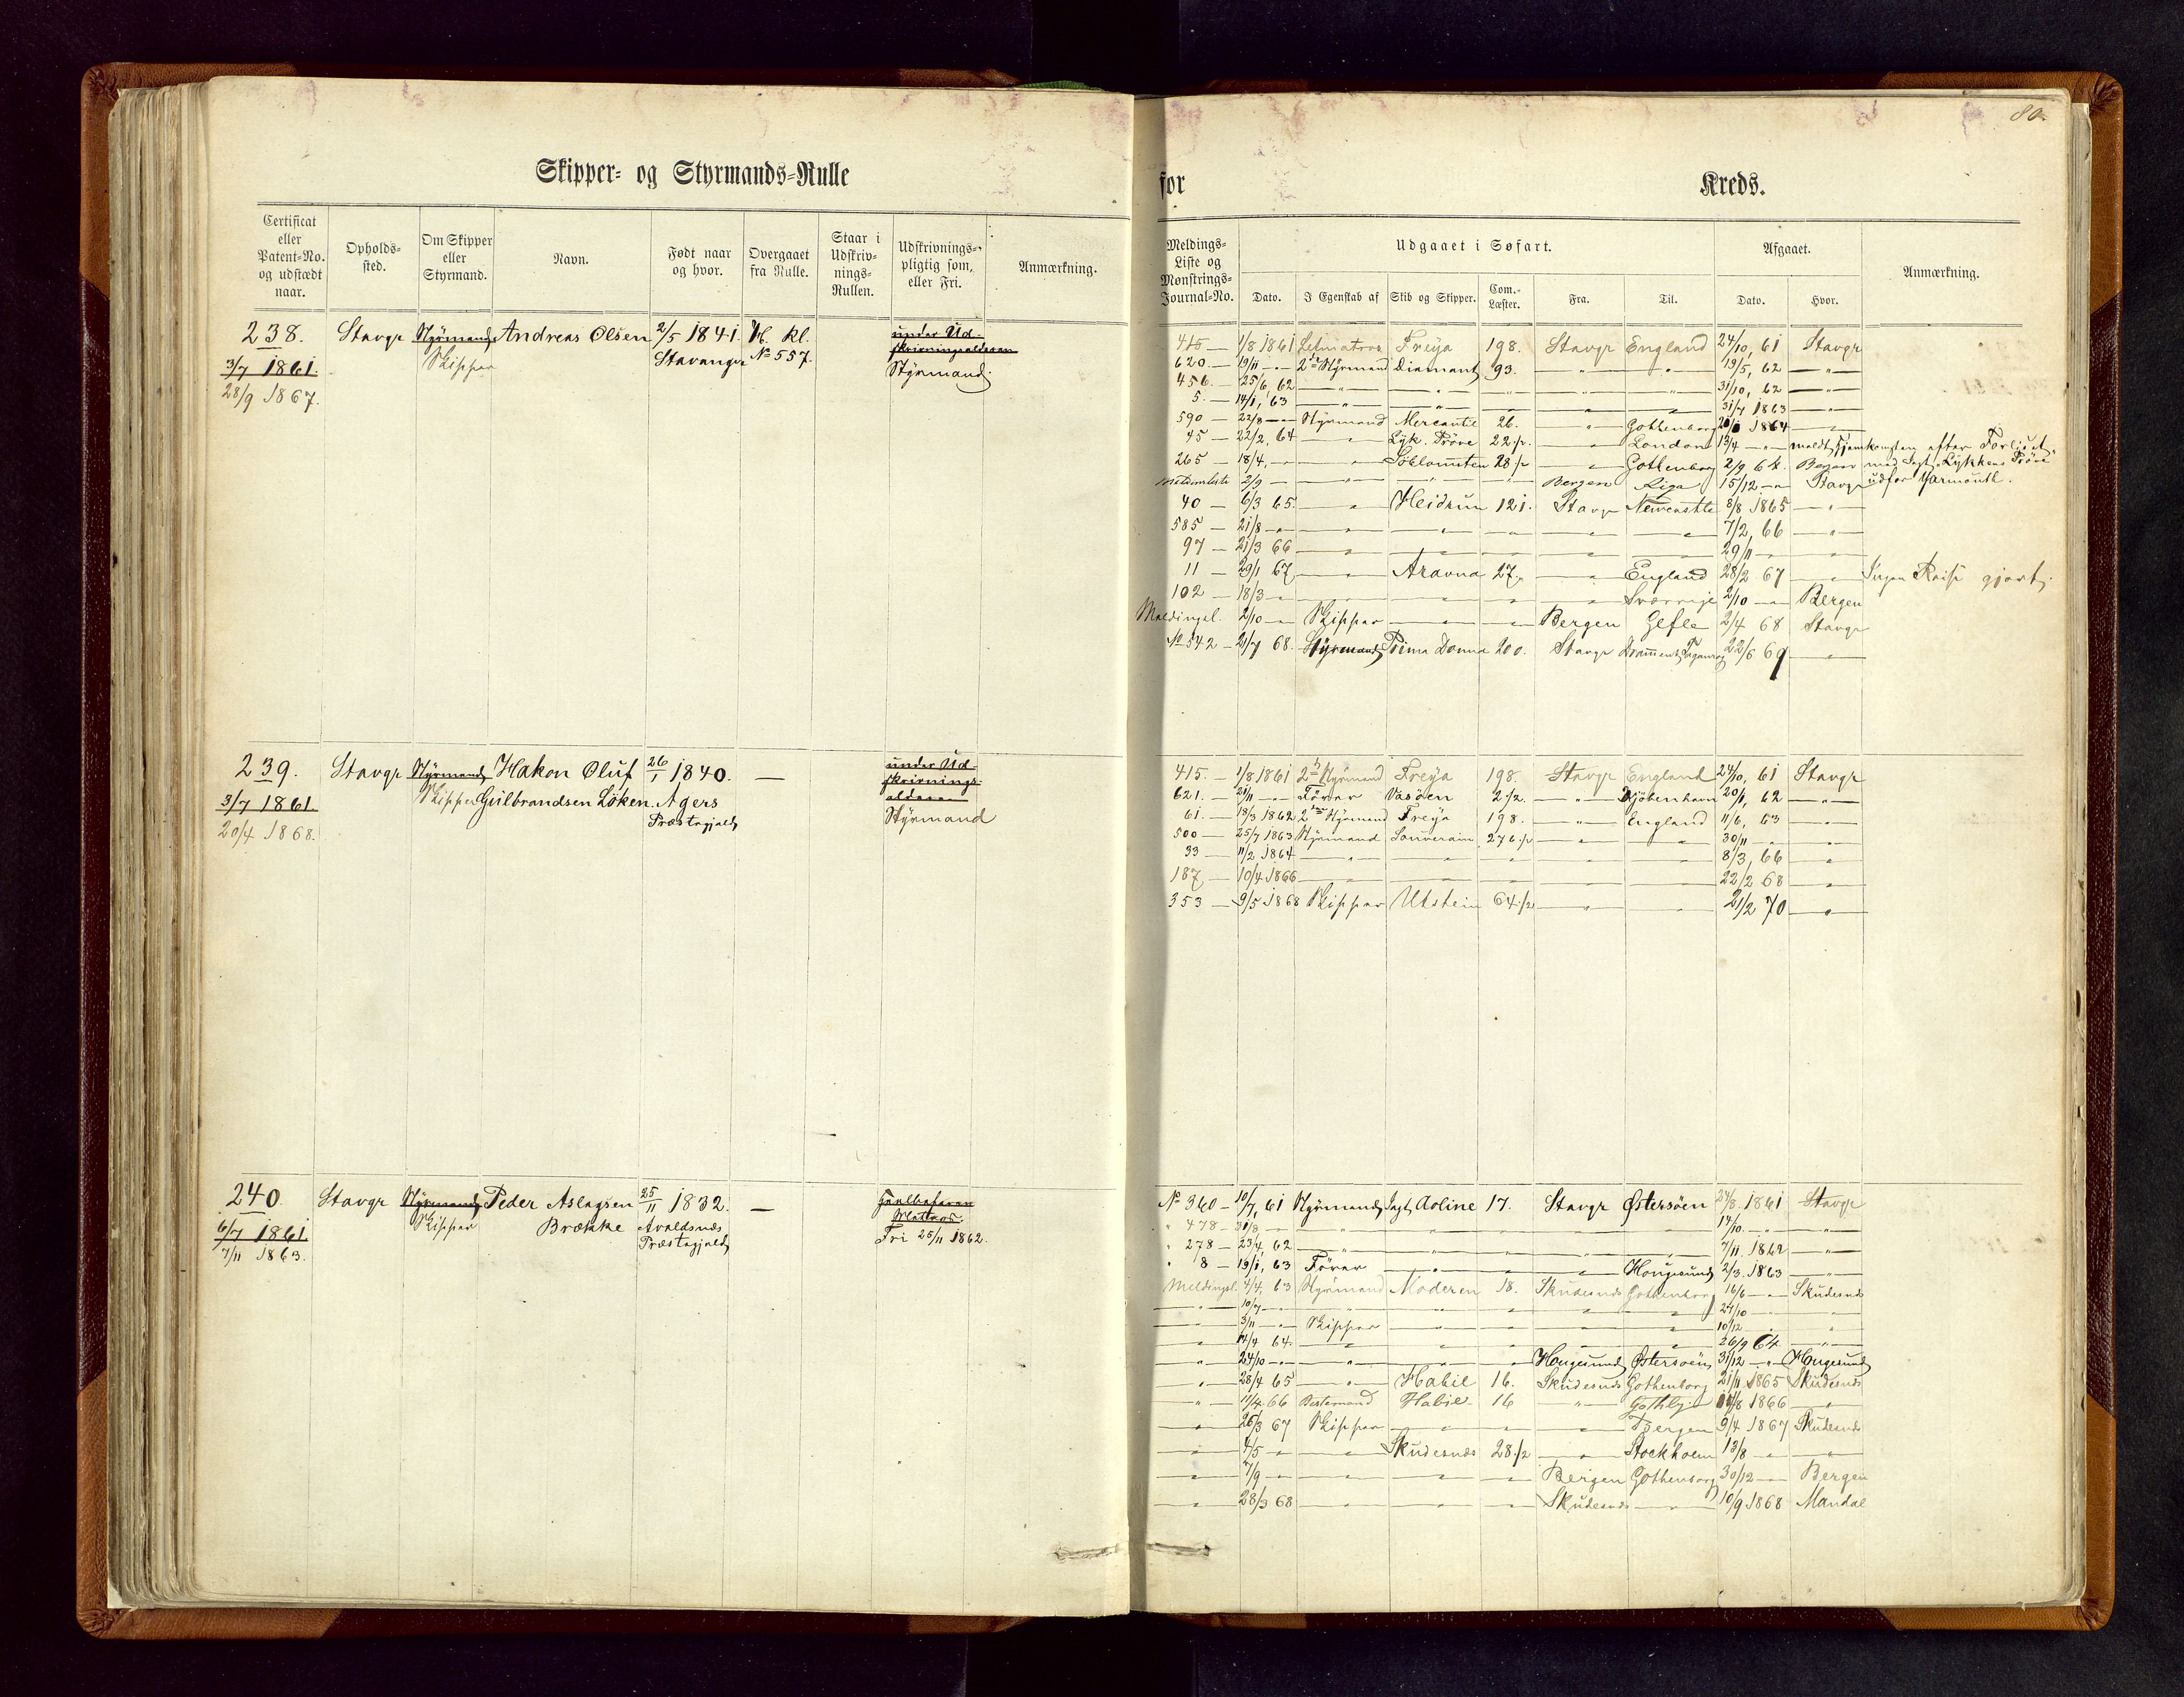 80.
Skipper- og Styrmands-Rulle
for Kreds.
Certificat eller Patent-No. og udstædt naar.
Opholds-sted.
Om Skipper eller Styrmand.
Navn.
Født naar og hvor.
Overgaaet fra Rulle.
Staar i Udskriv-nings-Rullen.
Udskrivnings-pligtig som, eller Fri.
Anmærkning.
Meldings-Liste og Mønstrings-Journal-No.
Udgaaet i Søfart.
Dato.
I Egenskab af
Skib og Skipper.
Com.-Læster.
Fra.
Til.
Afgaaet.
Dato.
Hvor.
Anmærkning.
238. Stavgr Styrmand Andreas Olsen 2/5 1841. No 557. under Ud-
3/7 1861. Skipper Stavanger skrivningsalderen
28/9 1867. Styrmand
415 — 1/8 1861 Letmatros Freya 198. Stavgr England 24/10, 61 Stavgr
620 — 19/11 — 2den Styrmand Diamant 93. — " — " 19/5, 62 — " —
456 — 25/6, 62 — " — " — " — " — " 31/10, 62 — " —
5. — 14/1, 63 — " — " — " — " — " 31/7 1863 — " —
590 — 22/8 — Styrmand Mercantil 26. — " — Gothenborg 1864 — " —
45 — 22/2, 64 — " — Lyk. Pröve 22 1/2. — " — London 13/4 — " — meldt Hjemkomsten efter Forliset
265 — 18/4, — " — Söblomsten 28 1/2 — " — Gothenborg 2/9 64. Bergen med Jagt "Lykkens Pröve"
2/9 — " — " — " — Bergen Riga 15/12 — " — Stavgr udfor Yarmouth.
40 — 6/3 65. — " — Heidrun 121. Stavgr Newcastle 8/8 1865 — " —
585 — 21/8 — " — " — " — " — " — 7/2, 66 — " —
97 — 21/3 66 — " — " — " — " — " — 29/11 — " —
11 — 29/1 67 — " — Aravna 27 — " — England 28/2 67 — " — Ingen Reise gjort.
102 — 18/3 — " — " — " — " — Sverrige 2/10 — " — Bergen
Meldingsl. 2/10 — " — Skipper — " — " — Bergen Gefle 2/4 68 Stavgr
No 542 — 21/7 68. Styrmand Prima Donna 200. Stavgr 22/6 69 — " —
239. Stavgr Styrmand Hakon Oluf 26/1 1840. — under Ud-
3/7 1861. Skipper Gulbrandsen Löken. Agers skrivnings-
20/4 1868. Præstegjeld alderen
Styrmand
415. — 1/8 1861 2den Styrmand Freya 198. Stavgr England 24/10, 61 Stavgr
621. — 21/11 — " — Förer Vasöen 2 1/2. — " — Kjöbenhavn 20/1, 62 — " —
61. — 18/3 1862 2den Styrmand Freya 198. — " — England 11/6, 63 — " —
500 — 25/7 1863 Styrmand Souverain 276 1/2 — " — " — 30/11 — " —
33 — 11/2 1864 — " — " — " — " — " — 8/3, 66 — " —
187 — 10/4 1866 — " — " — " — " — " — 22/2 68 — " —
353 — 9/5 1868 Skipper Utstein 64 1/2 — " — " — 21/2 70 — " —
240. Stavgr Styrmand Peder Aslagsen 25/11 1832. — Fuldbefaren
6/7 1861. Skipper Brække Avaldsnæs Matros.
7/11 1863. Præstegjeld Fri 25/11 1862.
No 360 — 10/7, 61 Styrmand Jagt Aoline 17. Stavgr Østersöen 24/8. 1861 Stavgr
" 478 — 31/8 — " — " — " — " — " — 14/10. — " —
" 278 — 23/4, 62 — " — " — " — " — " — 7/11. 1862 — " —
" 8 — 19/1, 63 Förer — " — " — " — Hougesund 2/3. 1863 — " —
Meldingsl. 4/4, 63 Styrmand Moderen 18. Skudesnæs Gothenborg 16/6 — " — Skudesnæs
— " — 10/7 — " — " — " — " — " — " — 24/10 — " —
— " — 3/11 — " — Skipper — " — " — " — " — 10/12 — " —
— " — 14/4 64. — " — " — " — " — " — 26/9 64. — " —
— " — 24/10 — " — " — " — " — Hougesund Østersöen 31/12 — " — Hougesund
— " — 28/4 65 — " — Habil 16. Skudesnæs Gothenborg 21/11 1865 Skudesnæs
— " — 11/4. 66 Bestemand Habil 16 — " — Gothbg 1866 — " —
— " — 26/3 67 Skipper — " — " — " — Bergen 9/4 1867 Skudesnæs
— " — 4/5 — " — " — Skudesnæs 28 1/2 — " — Stockholm 13/8 — " —
— " — 7/9 — " — " — " — " — Bergen Gothenborg 30/12 — " — Bergen
— " — 28/3 68 — " — " — " — Skudesnæs — " — 10/9 1868 Mandal